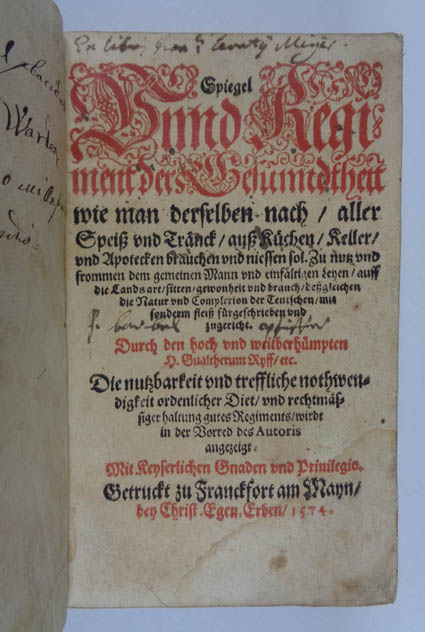 Ex libris
Spiegel
Vnnd Regi
ment der Gesundtheit
wie man derselben nach / aller
Speiß vnd Tränck / auß Küchen / Keller /
vnd Apotecken brauchen vnd niessen sol. Zu nutz vnd
frommen dem gemeinen Mann vnd einfältigen Leyen / auff
die Lands art / sitten / gewonheit vnd brauch / deßgleichen
die Natur vnd Complexion der Teutschen / mit
sonderm fleiß fürgeschrieben vnd
zugericht.
Durch den hoch vnd weitberhümpten
H. Gualtherum Ryff / etc.
Die nutzbarkeit vnd treffliche nothwen-
digkeit ordenlicher Diet / vnd rechtmäs-
siger haltung gutes Regiments / wirdt
in der Vorred des Autoris
angezeigt.
Mit Keyserlichen Gnaden vnd Priuilegio.
Getruckt zu Franckfort am Mayn /
bey Christ. Egen. Erben / 1574.